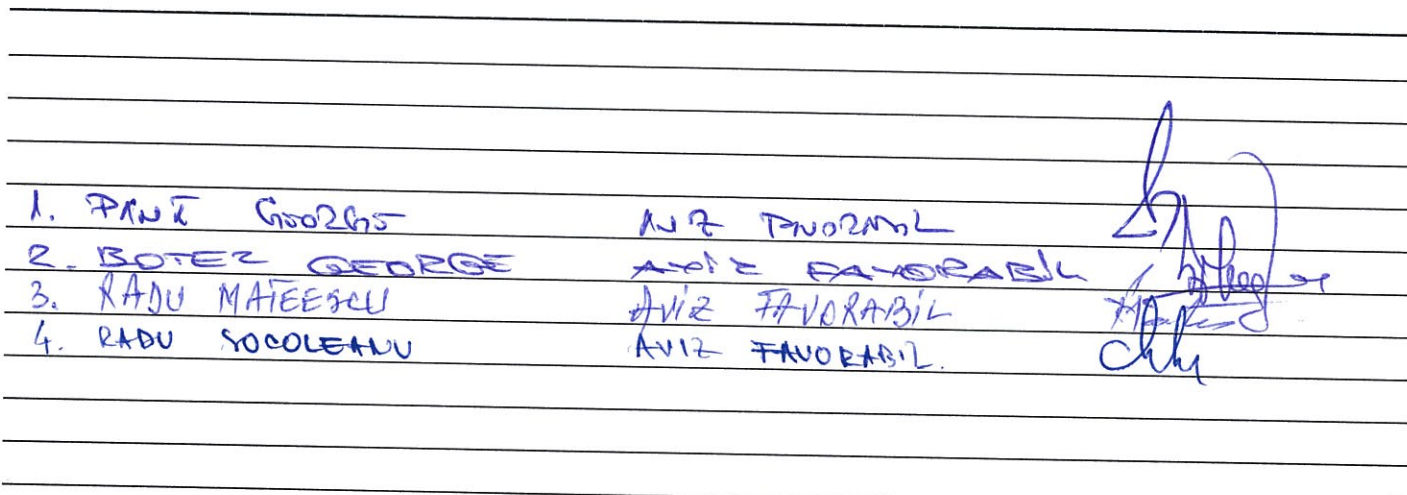 1. PANĂ GEORGE AVIZ FAVORABIL
2. BOTEZ GEORGE AVIZ FAVORABIL
3. RADU MATEESCU AVIZ FAVORABIL
4. RADU SOCOLEANU AVIZ FAVORABIL.